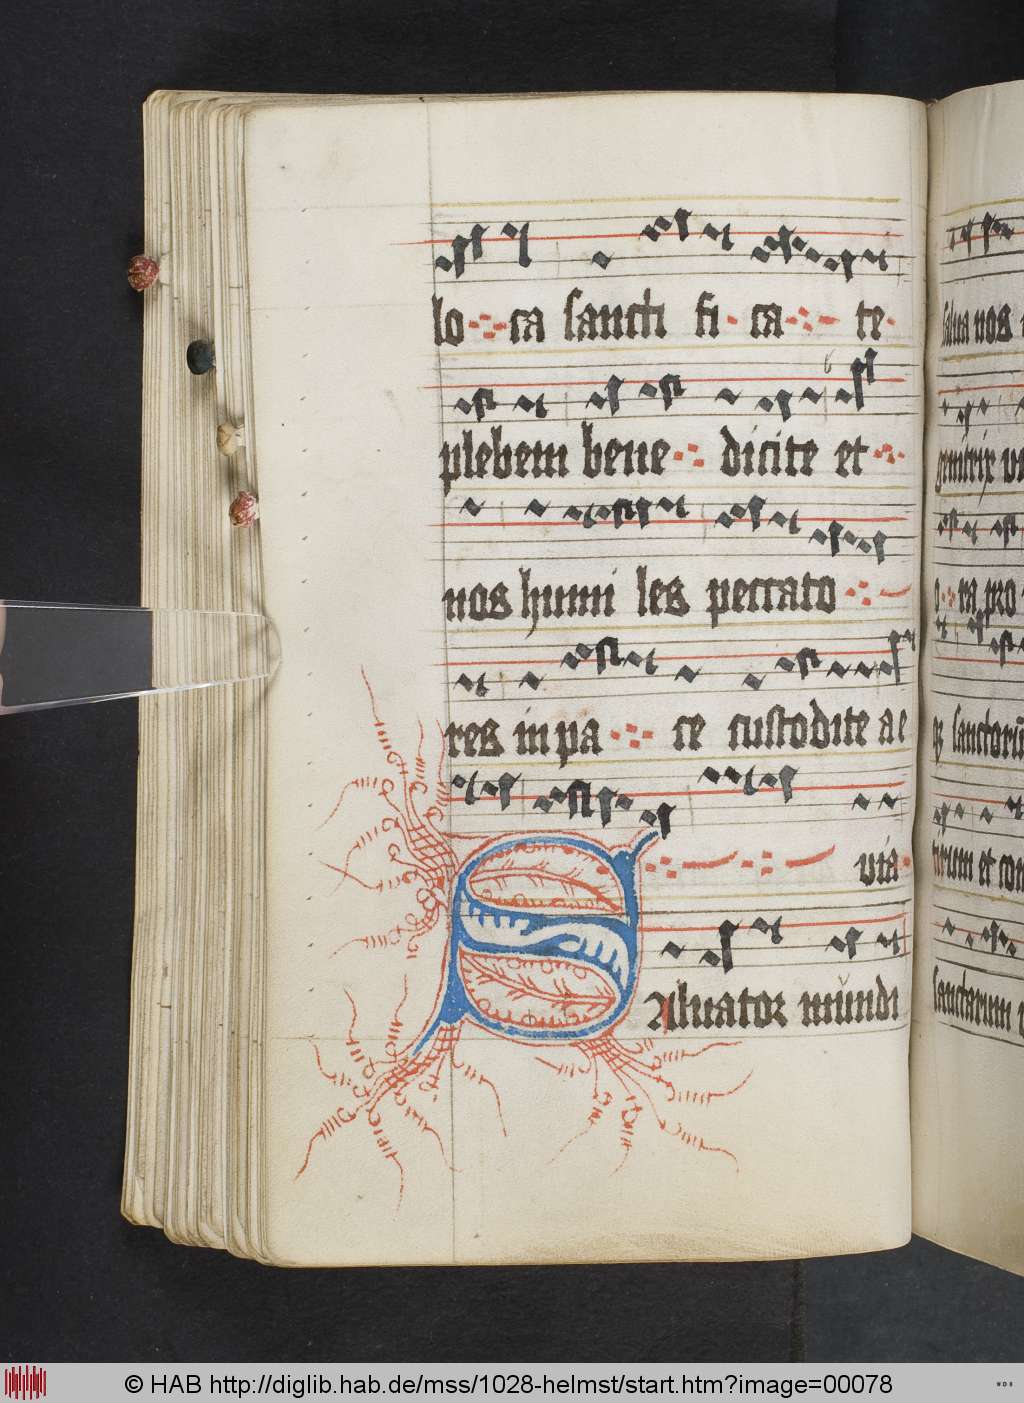 lo ca sancti fi ca te
plebem bene dicite et
nos humi les peccato
res in pa ce custodite a e
via
SAluator mundi
Salua nos
genitrix vi
o ra pro
sanctorū
et con
sanctarum
© HAB http://diglib.hab.de/mss/1028-helmst/start.htm?image=00078